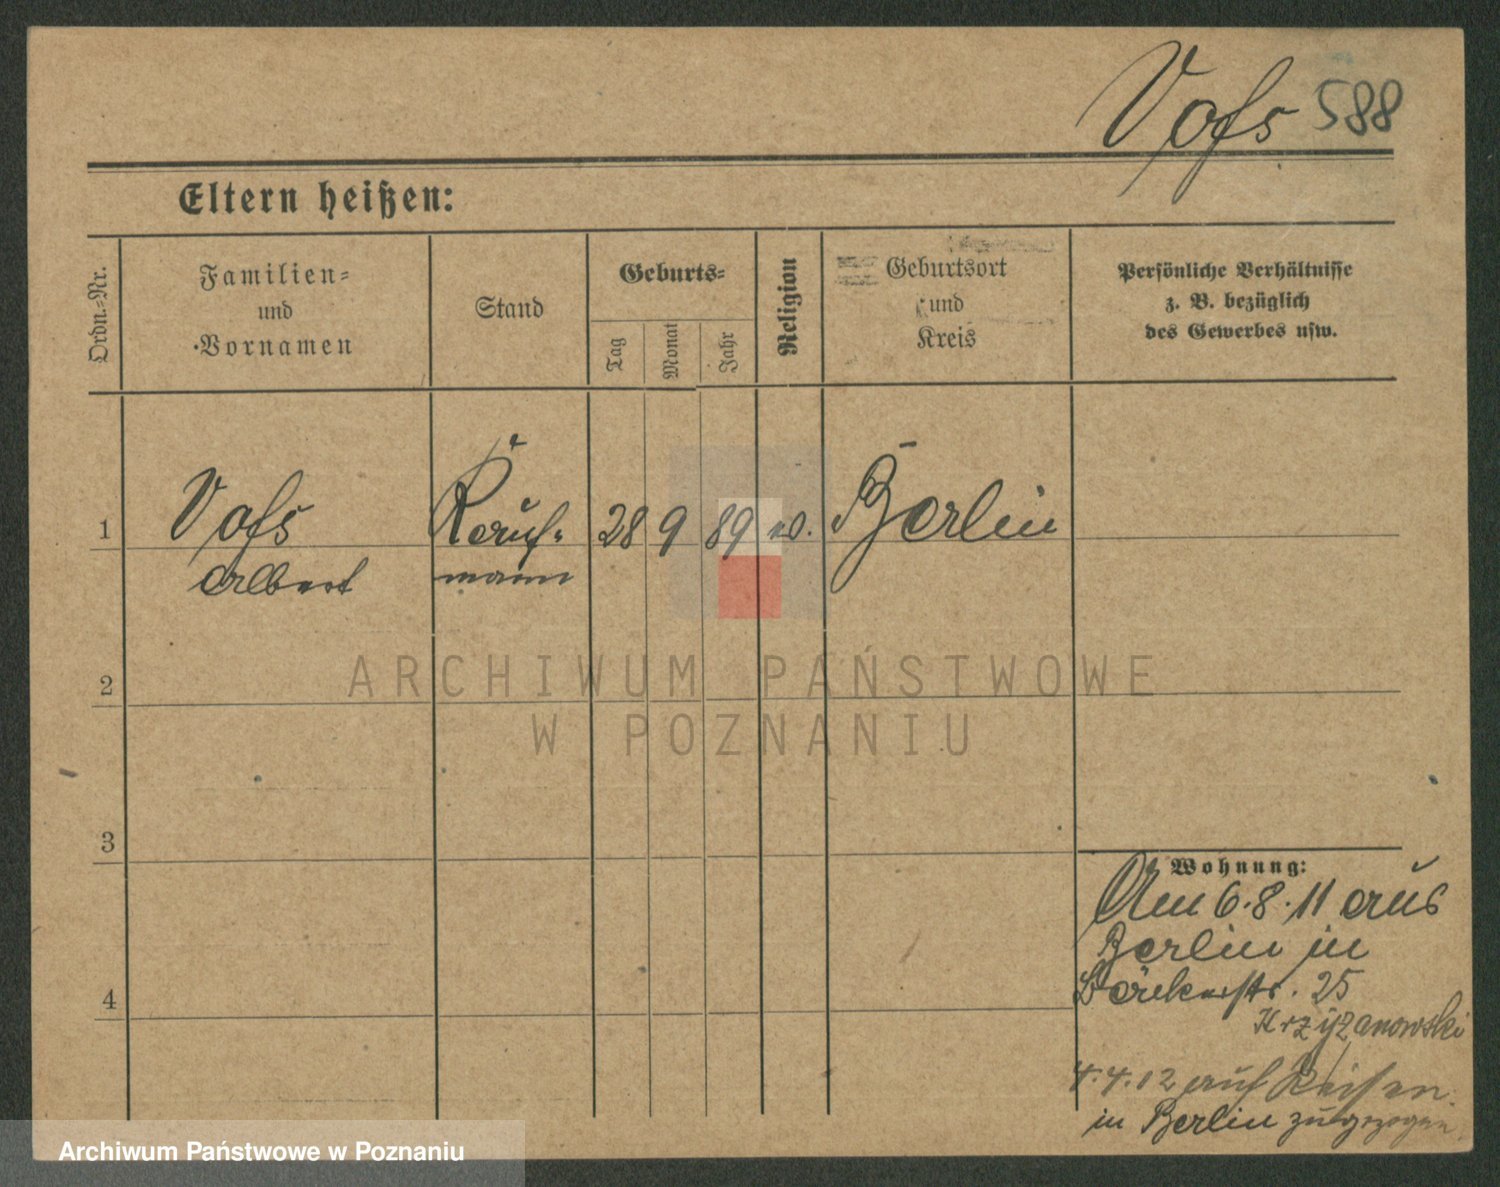 Voß 588
Eltern heißen:
Ordn.-Nr.
Familien-
und
Vornamen
Stand
Geburts-
Tag
Monat
Jahr
Religion
Geburtsort
und
Kreis
Persönliche Verhältnisse
z. B. bezüglich
des Gewerbes usw.
1
Voß
Albert
Kauf-
mann
28
9
89
Berlin
2
3
4
Wohnung:
Am 6.8.11 aus
Berlin in
Bäckerstr. 25
Krzyżanowski
4.4.12 auf Reisen
in Berlin zugezogen
ARCHIWUM PAŃSTWOWE
W POZNANIU
Archiwum Państwowe w Poznaniu